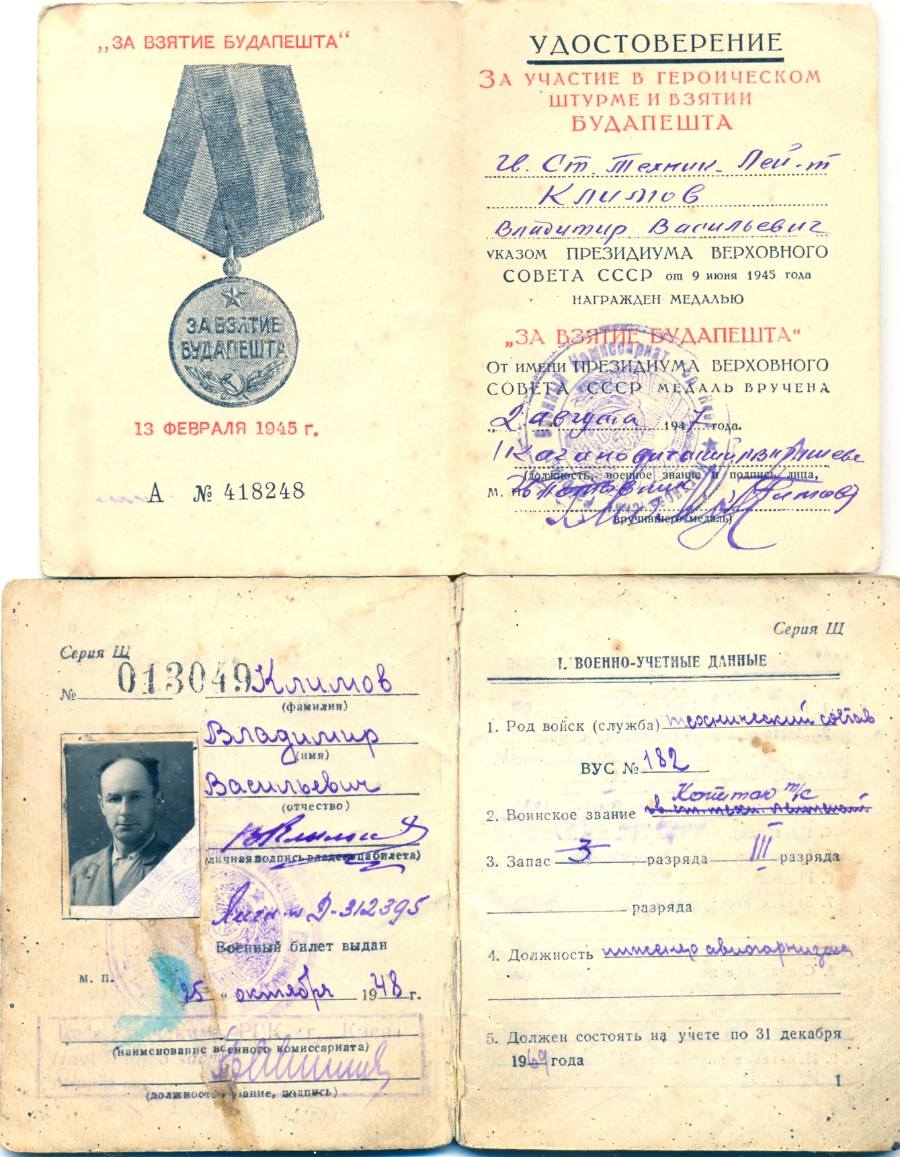 „ЗА ВЗЯТИЕ БУДАПЕШТА“
ЗА ВЗЯТИЕ
БУДАПЕШТА
13 ФЕВРАЛЯ 1945 г.
А № 418248
УДОСТОВЕРЕНИЕ
ЗА УЧАСТИЕ В ГЕРОИЧЕСКОМ
ШТУРМЕ И ВЗЯТИИ
БУДАПЕШТА
Гв. Ст. Техник-Лей-т
Климов
Владимир Васильевич
УКАЗОМ ПРЕЗИДИУМА ВЕРХОВНОГО
СОВЕТА СССР от 9 июня 1945 года
НАГРАЖДЕН МЕДАЛЬЮ
„ЗА ВЗЯТИЕ БУДАПЕШТА“
От имени ПРЕЗИДИУМА ВЕРХОВНОГО
СОВЕТА СССР МЕДАЛЬ ВРУЧЕНА
„2 августа 1947 года.
(должность, военное звание и подпись лица,
М. П.
вручившего медаль)
Серия Щ
№ 013049 Климов
(фамилия)
Владимир
(имя)
Васильевич
(отчество)
(личная подпись владельца билета)
Д-312395
Военный билет выдан
М. П. 25 „ октября 1948 г.
(наименование военного комиссариата)
(должность, звание, подпись)
Серия Щ
I. ВОЕННО-УЧЕТНЫЕ ДАННЫЕ
1. Род войск (служба) технический состав
ВУС № 182
Капитан т/с
2. Воинское звание
3. Запас 3 разряда III разряда
разряда
4. Должность инженер
5. Должен состоять на учете по 31 декабря
1969 года
1